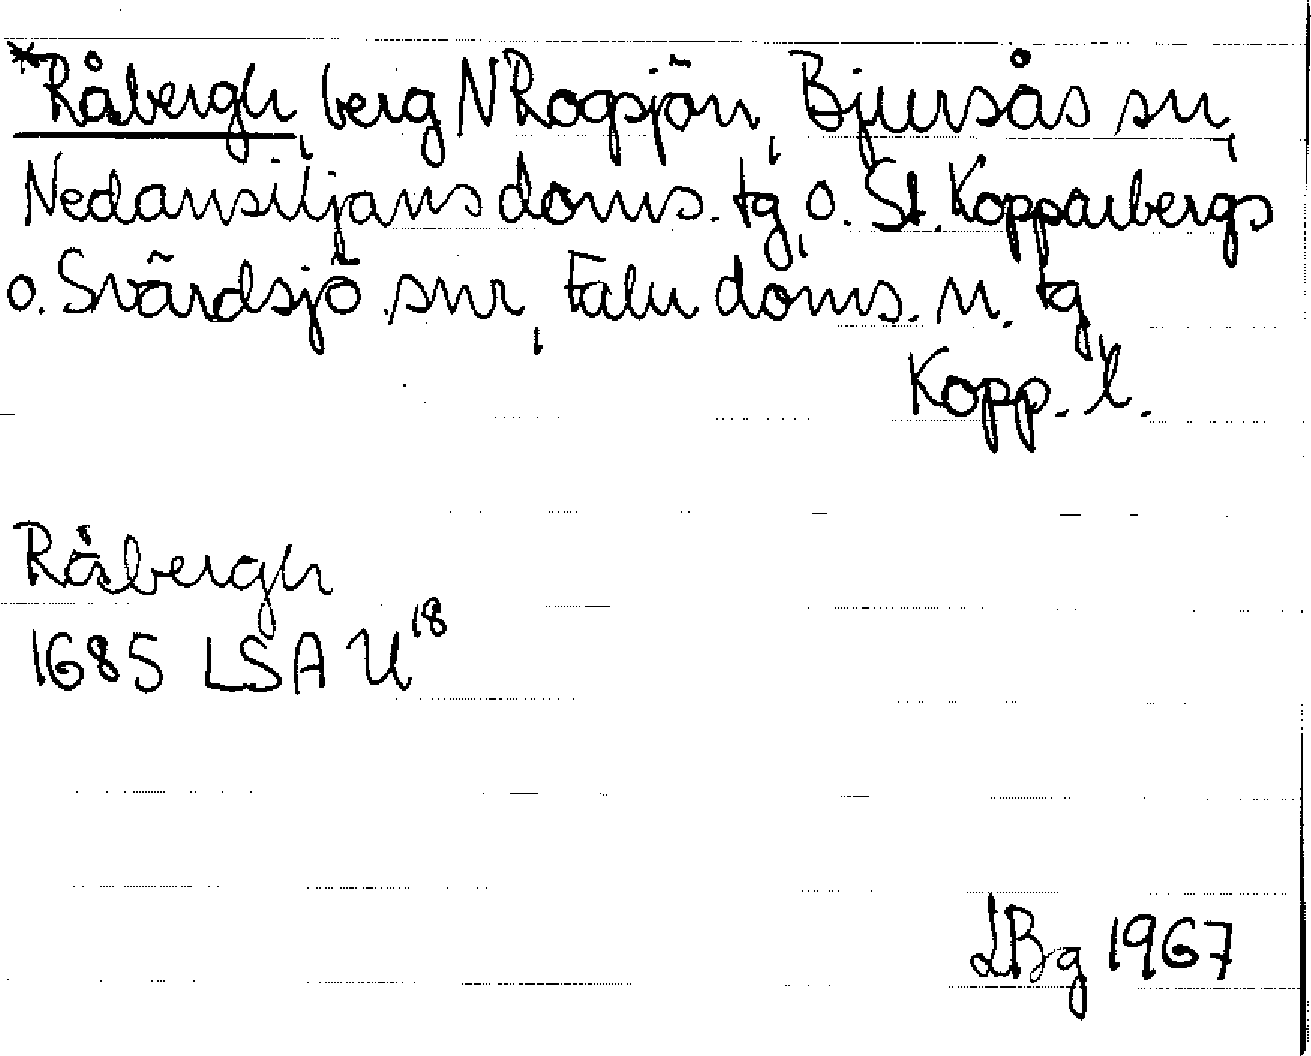 *Råbergh, berg N Rogsjön, Bjursås sn,
Nedansiljans doms. tg, o. St. Kopparbergs
o. Svärdsjö snr, Falu doms. n. tg,
Kopp. l.
Råbergh
1685 LSA U18
LBg 1967